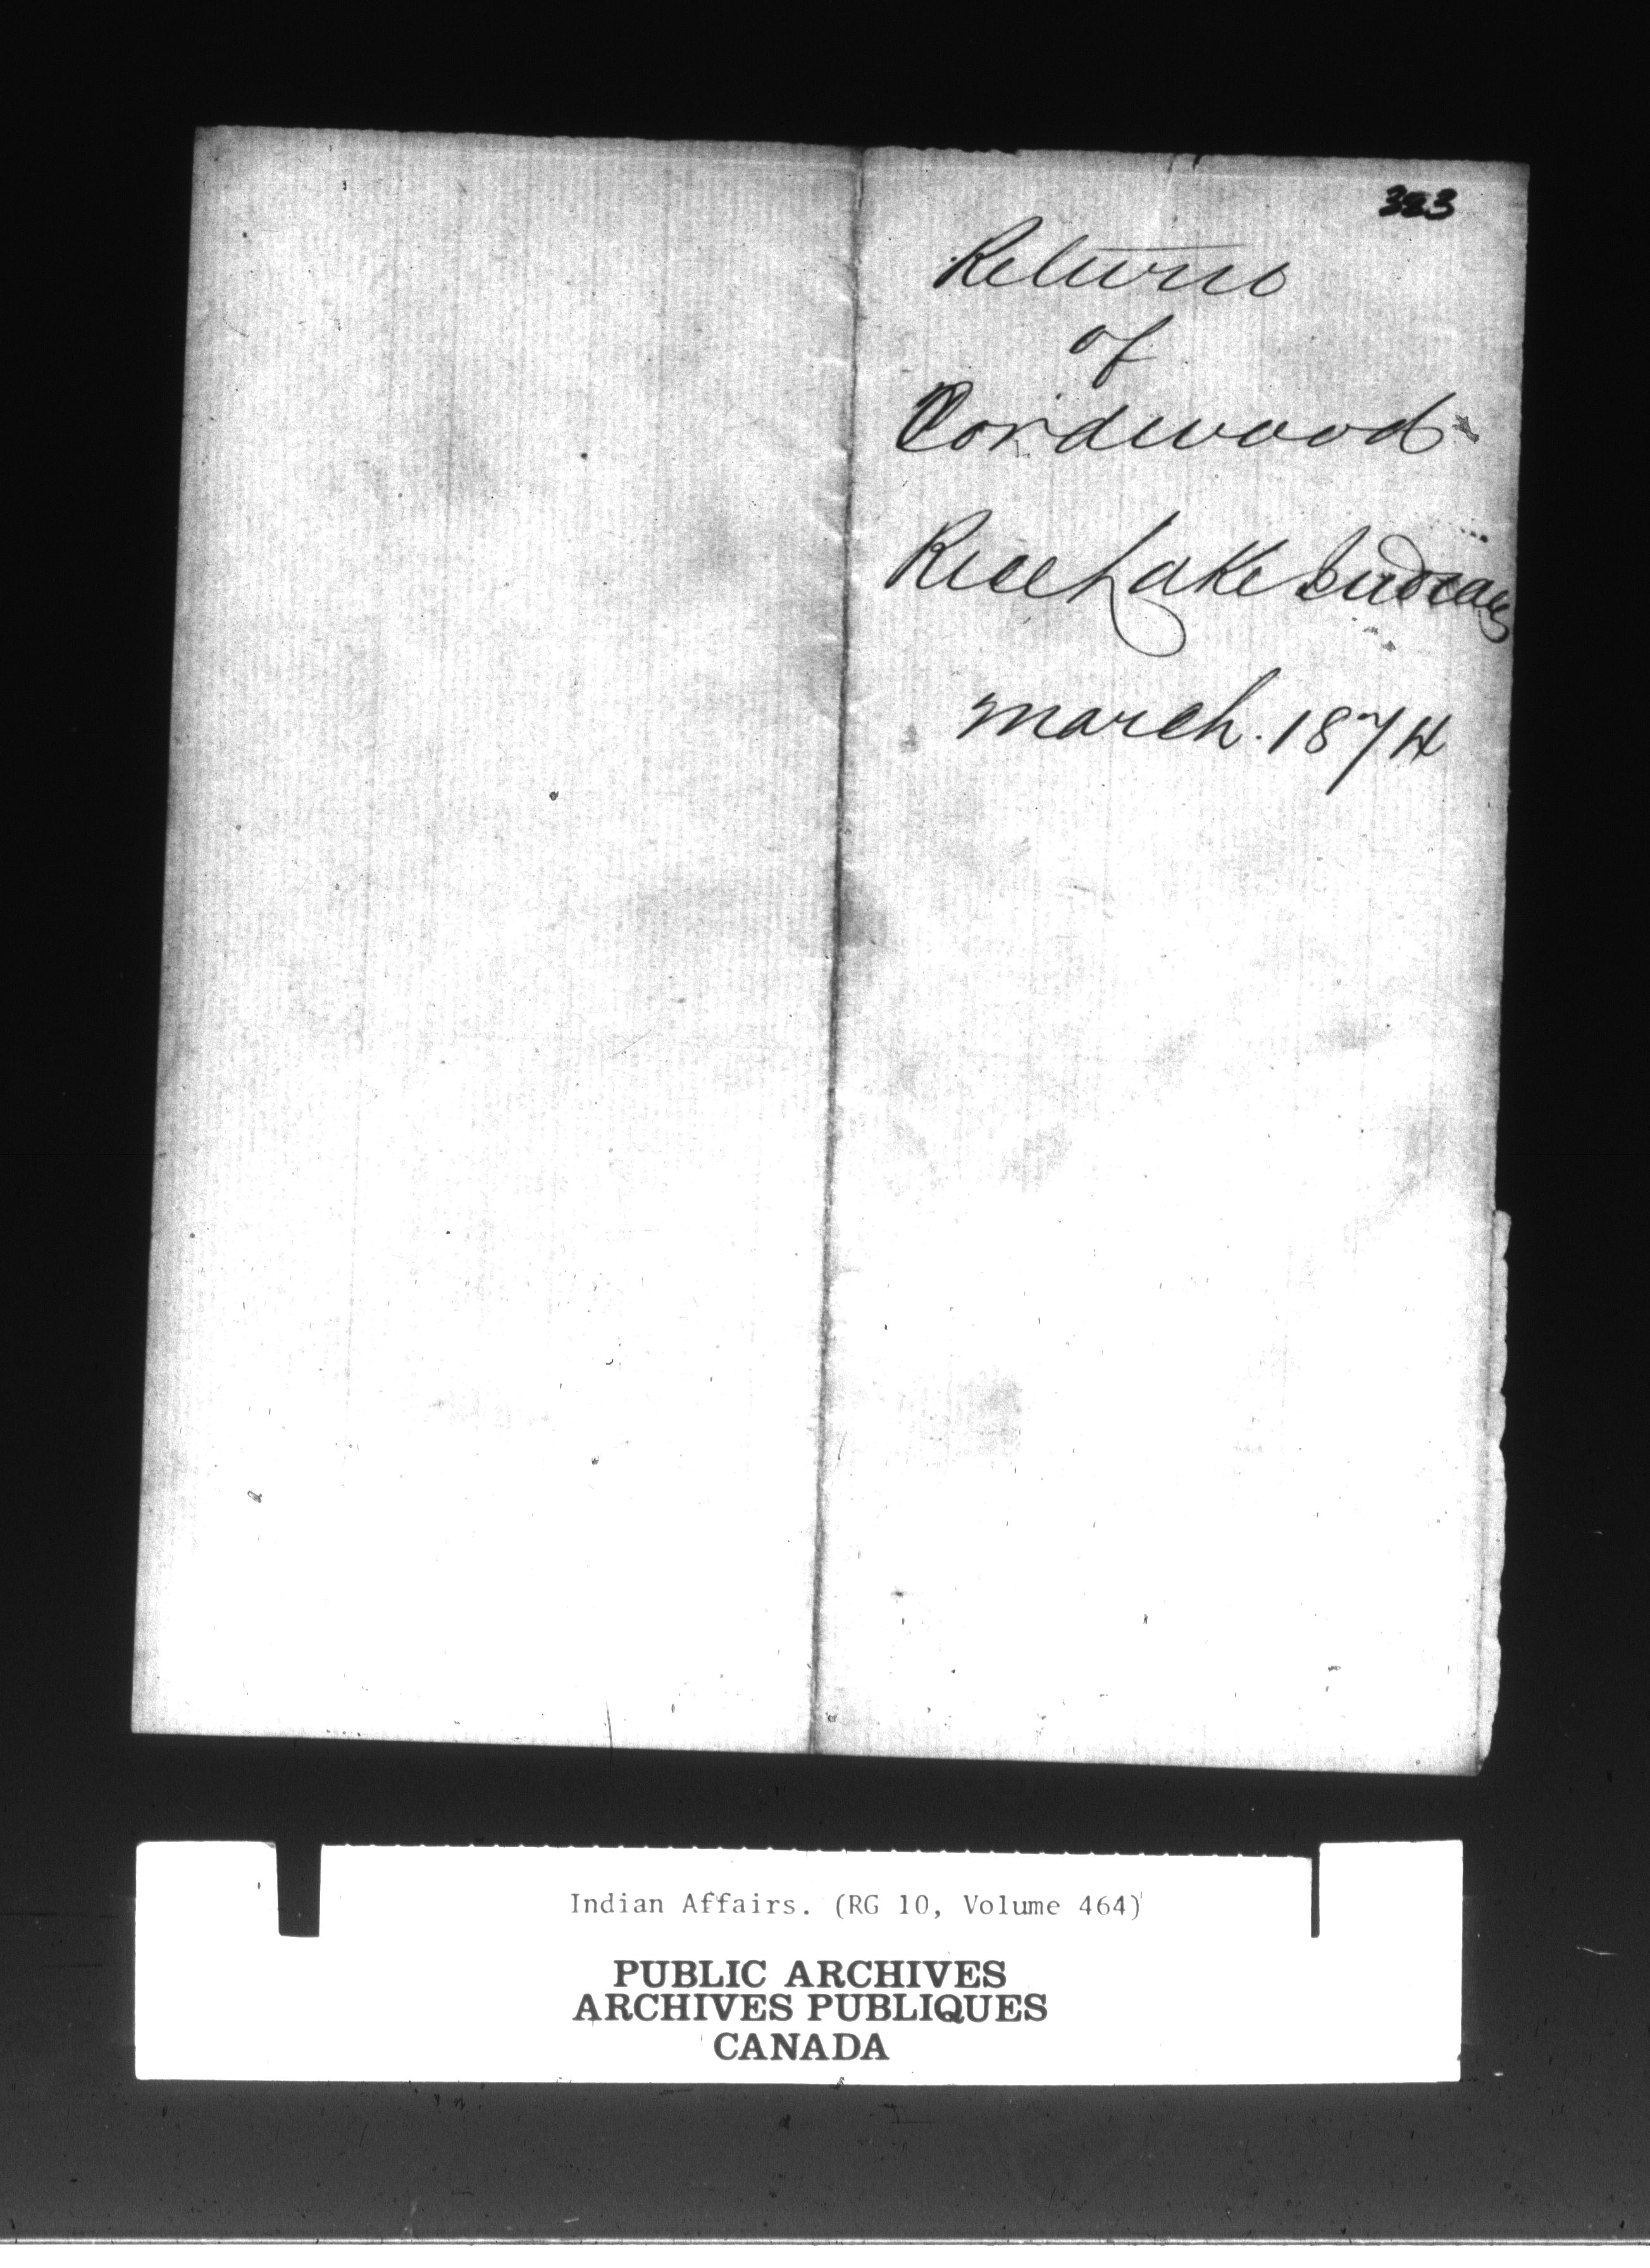 323
Returns
of
Cordwood
Rice Lake Indians
March. 1874
Indian Affairs. (RG 10, Volume 464)
PUBLIC ARCHIVES
ARCHIVES PUBLIQUES
CANADA